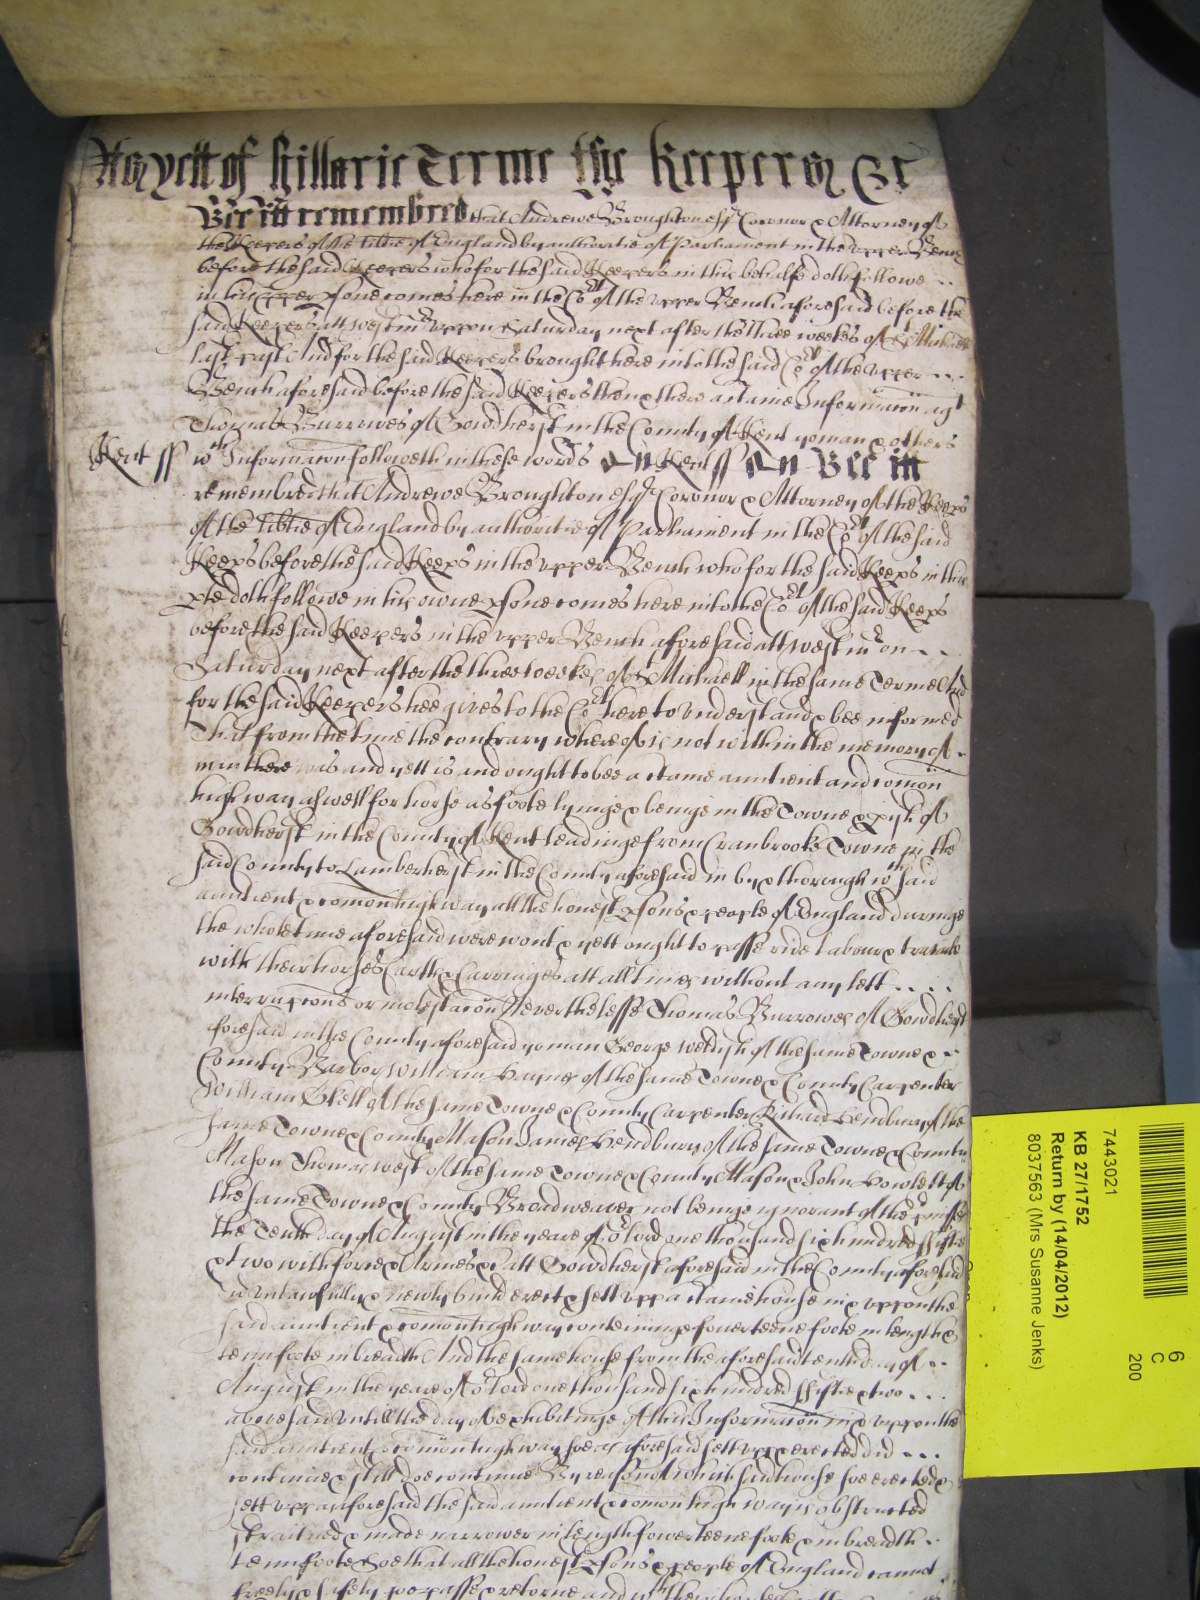 As yett of Hillarie Terme the Keepers &c
Bee itt remembred that Andrewe Broughton esqr Coronor & Attorney of
the Keepers of the libtie of England by authoritie of Parliament in the upper Bench
before the said Keepers who for the said Keepers in this behalfe doth followe ..
in his pper psone comes here in the Cort of the upper Bench aforesaid before the
said Keepers att westmr uppon Saturday next after the three weekes of St Michaell
last past And for the said Keepers brought here into the said Cort of the upper ...
Bench aforesaid before the said Keepers then & there a ctaine Informacon agt
Thomas Burrowes of Gowdherst in the County of Kent yoman & others
Kent ss wch Informacon followeth in these words Kent ss Bee itt
remembred that Andrewe Broughton esqr Coronor & Attorney of the Keeps
of the libtie of England by authoritie of Parliament in the Cort of the said
Keeps before the said Keeps in the upper Bench who for the said Keeps in this
pte doth followe in his owne psone comes here into the Cort of the said Keeps
before the said Keepers in the upper Bench aforesaid att westmr on ..
Saturday next after the three weekes of St Michaell in the same Terme And
for the said Keepers hee gives to the Cort here to understand & bee informed
That from the time the contrary whereof is not within the memory of .
man there was and yett is and ought to bee a ctaine auntient and comon
high way aswell for horse as foote lyinge & beinge in the Towne & pish of
Gowdherst in the County of Kent leadinge from Cranbrooke Towne in the
said County to Lamberherst in the County aforesaid in by & thorough wch said
auntient & comon high way all the honest psons & people of England duringe
the whole time aforesaid were wont & yett ought to passe ride labour & travaile
with their horses Carts & Carriages att all times without any lett ....
interrupcons or molestacon Neverthelesse Thomas Burrowes of Gowdherst
foresaid in the County aforesaid yoman George of the same Towne & ..
County Barbor William Haynes of the same Towne & County Carpenter
William Skell of the same Towne & County Carpenter Richard Hendbury of the
same Towne & County Mason James Hendbury of the same Towne & County
Mason Thomas West of the same Towne & County Mason & John Howlett of
the same Towne & County Broadweaver not beinge ignorant of the pmisses
the Tenth day of August in the yeare of or lord one thousand six hundred fiftie
& two with force & Armes &c att Gowdherst aforesaid in the County aforesaid
did unlawfully & newly build erect & sett upp a ctaine house in & uppon the
said auntient & comon high way conteininge fowerteene foote in length &
tenn foote in breadth And the same house from the aforesaid tenth day of ..
August in the yeare of or lord one thousand six hundred fiftie & two ...
abovesaid untill the day of exhibitinge of this Informacon in & uppon the
said auntient & comon high way soe as aforesaid sett upp & erected did ...
continue & still doe continue By reason of which said house soe erected &
sett upp as aforesaid the said auntient & comon high way is obstructed
straitned & made narrower in length fowerteene foote & in breadth ..
tenn foote Soe that all the honest psons & people of England cannot
freely & safely goe passe & retorne and wth their
7443021
KB 27/1752
Return by (14/04/2012)
8037563 (Mrs Susanne Jenks)
6
C
200